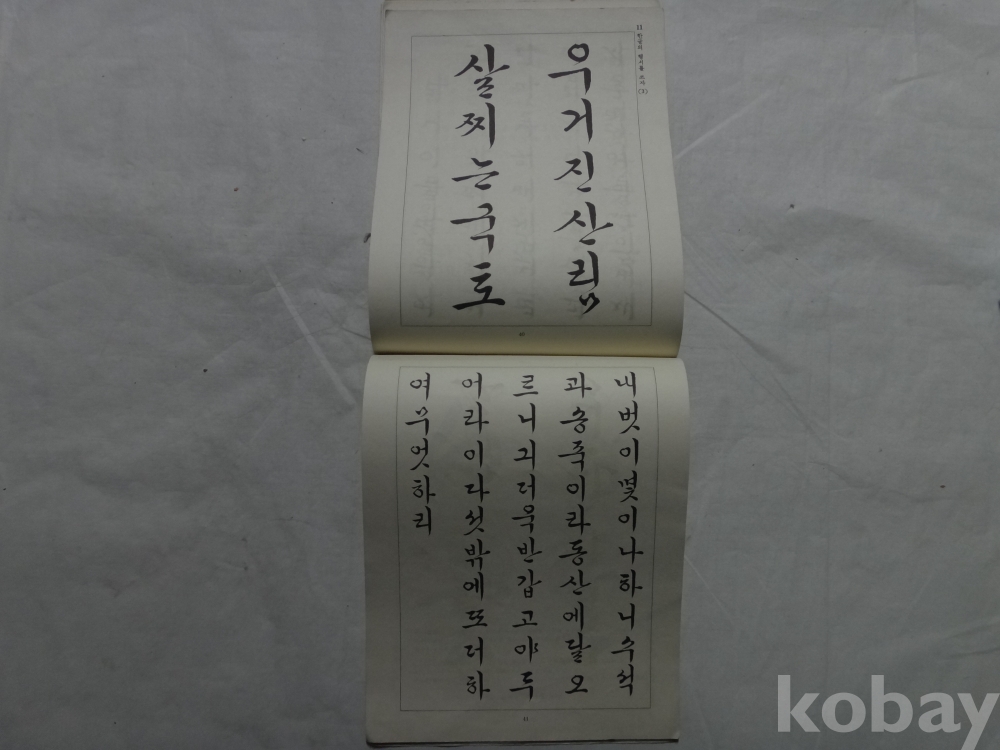 11 한글의 행서를 쓰자 (3)
우거진산림
살찌는국토
40
내벗이몇이나하니수석
과송죽이라동산에달오
르니긔더욱반갑고야두
어라이다섯밖에또더하
여무엇하리
41
kobay